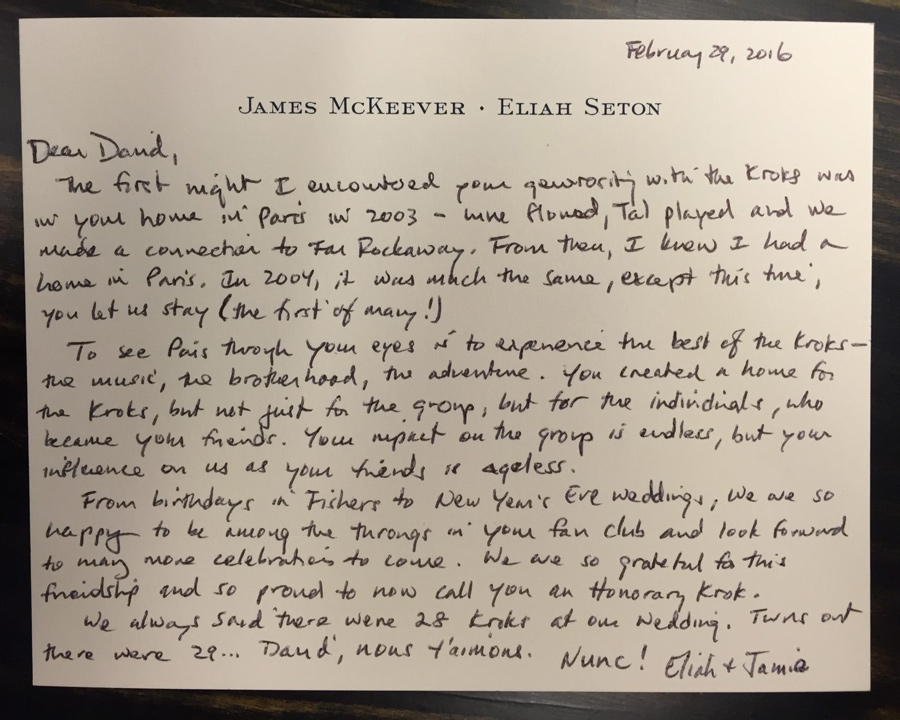 February 29, 2016
JAMES MCKEEVER · ELIAH SETON
Dear David,
The first night I encountered your generosity with the Kroks was
in your home in Paris in 2003 – wine flowed, Tal played and we
made a connection to Far Rockaway. From then, I knew I had a
home in Paris. In 2004, it was much the same, except this time,
you let us stay (the first of many!)
To see Paris through your eyes is to experience the best of the Kroks –
the music, the brotherhood, the adventure. You created a home for
the Kroks, but not just for the group, but for the individuals, who
became your friends. Your impact on the group is endless, but your
influence on us as your friends is ageless.
From birthdays in Fishers to New Year's Eve weddings, we are so
happy to be among the throngs in your fan club and look forward
to many more celebrations to come. We are so grateful for this
friendship and so proud to now call you an Honorary Krok.
We always said there were 28 Kroks at our wedding. Turns out
there were 29... David, nous t'aimons. Nunc! Eliah + Jamie